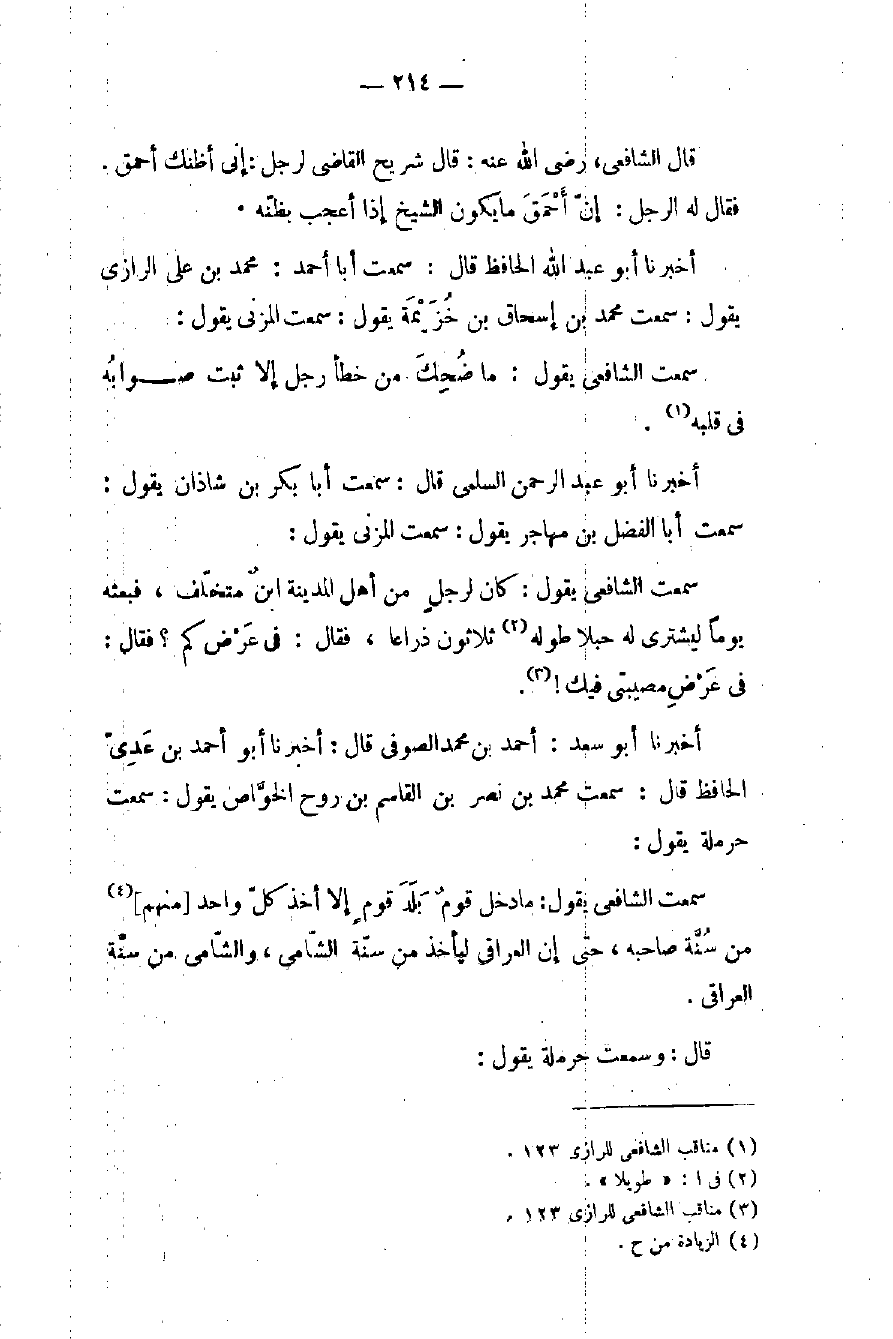 — ٢١٤ —
قال الشافعى، رضى الله عنه : قال شريح القاضى لرجل : إنى أظنك أحمق .
فقال له الرجل : إنّ أَحْمَقَ مايكون الشيخ إذا أعجب بظنّه .
أخبرنا أبو عبد الله الحافظ قال : سمعت أبا أحمد : محمد بن على الرازى
يقول : سمعت محمد بن إسحاق بن خُزَيْمَة يقول : سمعت المزنى يقول :
سمعت الشافعى يقول : ما ضُحِكَ من خطأ رجل إلا ثبت صوابُه
فى قلبه(١) .
أخبرنا أبو عبد الرحمن السلمى قال : سمعت أبا بكر بن شاذان يقول :
سمعت أبا الفضل بن مهاجر يقول : سمعت المزنى يقول :
سمعت الشافعى يقول : كان لرجلٍ من أهل المدينة ابنٌ متخلّف ، فبعثه
يوماً ليشترى له حبلا طوله(٢) ثلاثون ذراعا ، فقال : فى عَرْض كم ؟ فقال :
فى عَرْضِ مصيبتى فيك !(٣).
أخبرنا أبو سعد : أحمد بن محمد الصوفى قال : أخبرنا أبو أحمد بن عَدِىّ
الحافظ قال : سمعت محمد بن نصر بن القاسم بن روح الخوَّاص يقول : سمعت
حرملة يقول :
سمعت الشافعى يقول : مادخل قومٌ بَلَدَ قومٍ إلا أخذ كلّ واحد [منهم](٤)
من سُنَّة صاحبه ، حتّى إن العراقى ليأخذ من سنّة الشّامى ، والشّامى من سنّة
العراقى .
قال : وسمعت حرملة يقول :
(١) مناقب الشافعى للرازى ١٢٣ .
(٢) فى ا : « طويلا » .
(٣) مناقب الشافعى للرازى ١٢٣ .
(٤) الزيادة من ح .